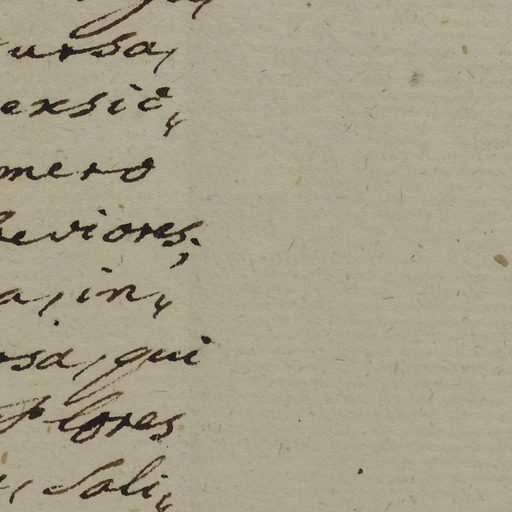 ursa,
exsic,
mero
beviores;
a, in,
rsa, qui
Flores
, Soli,